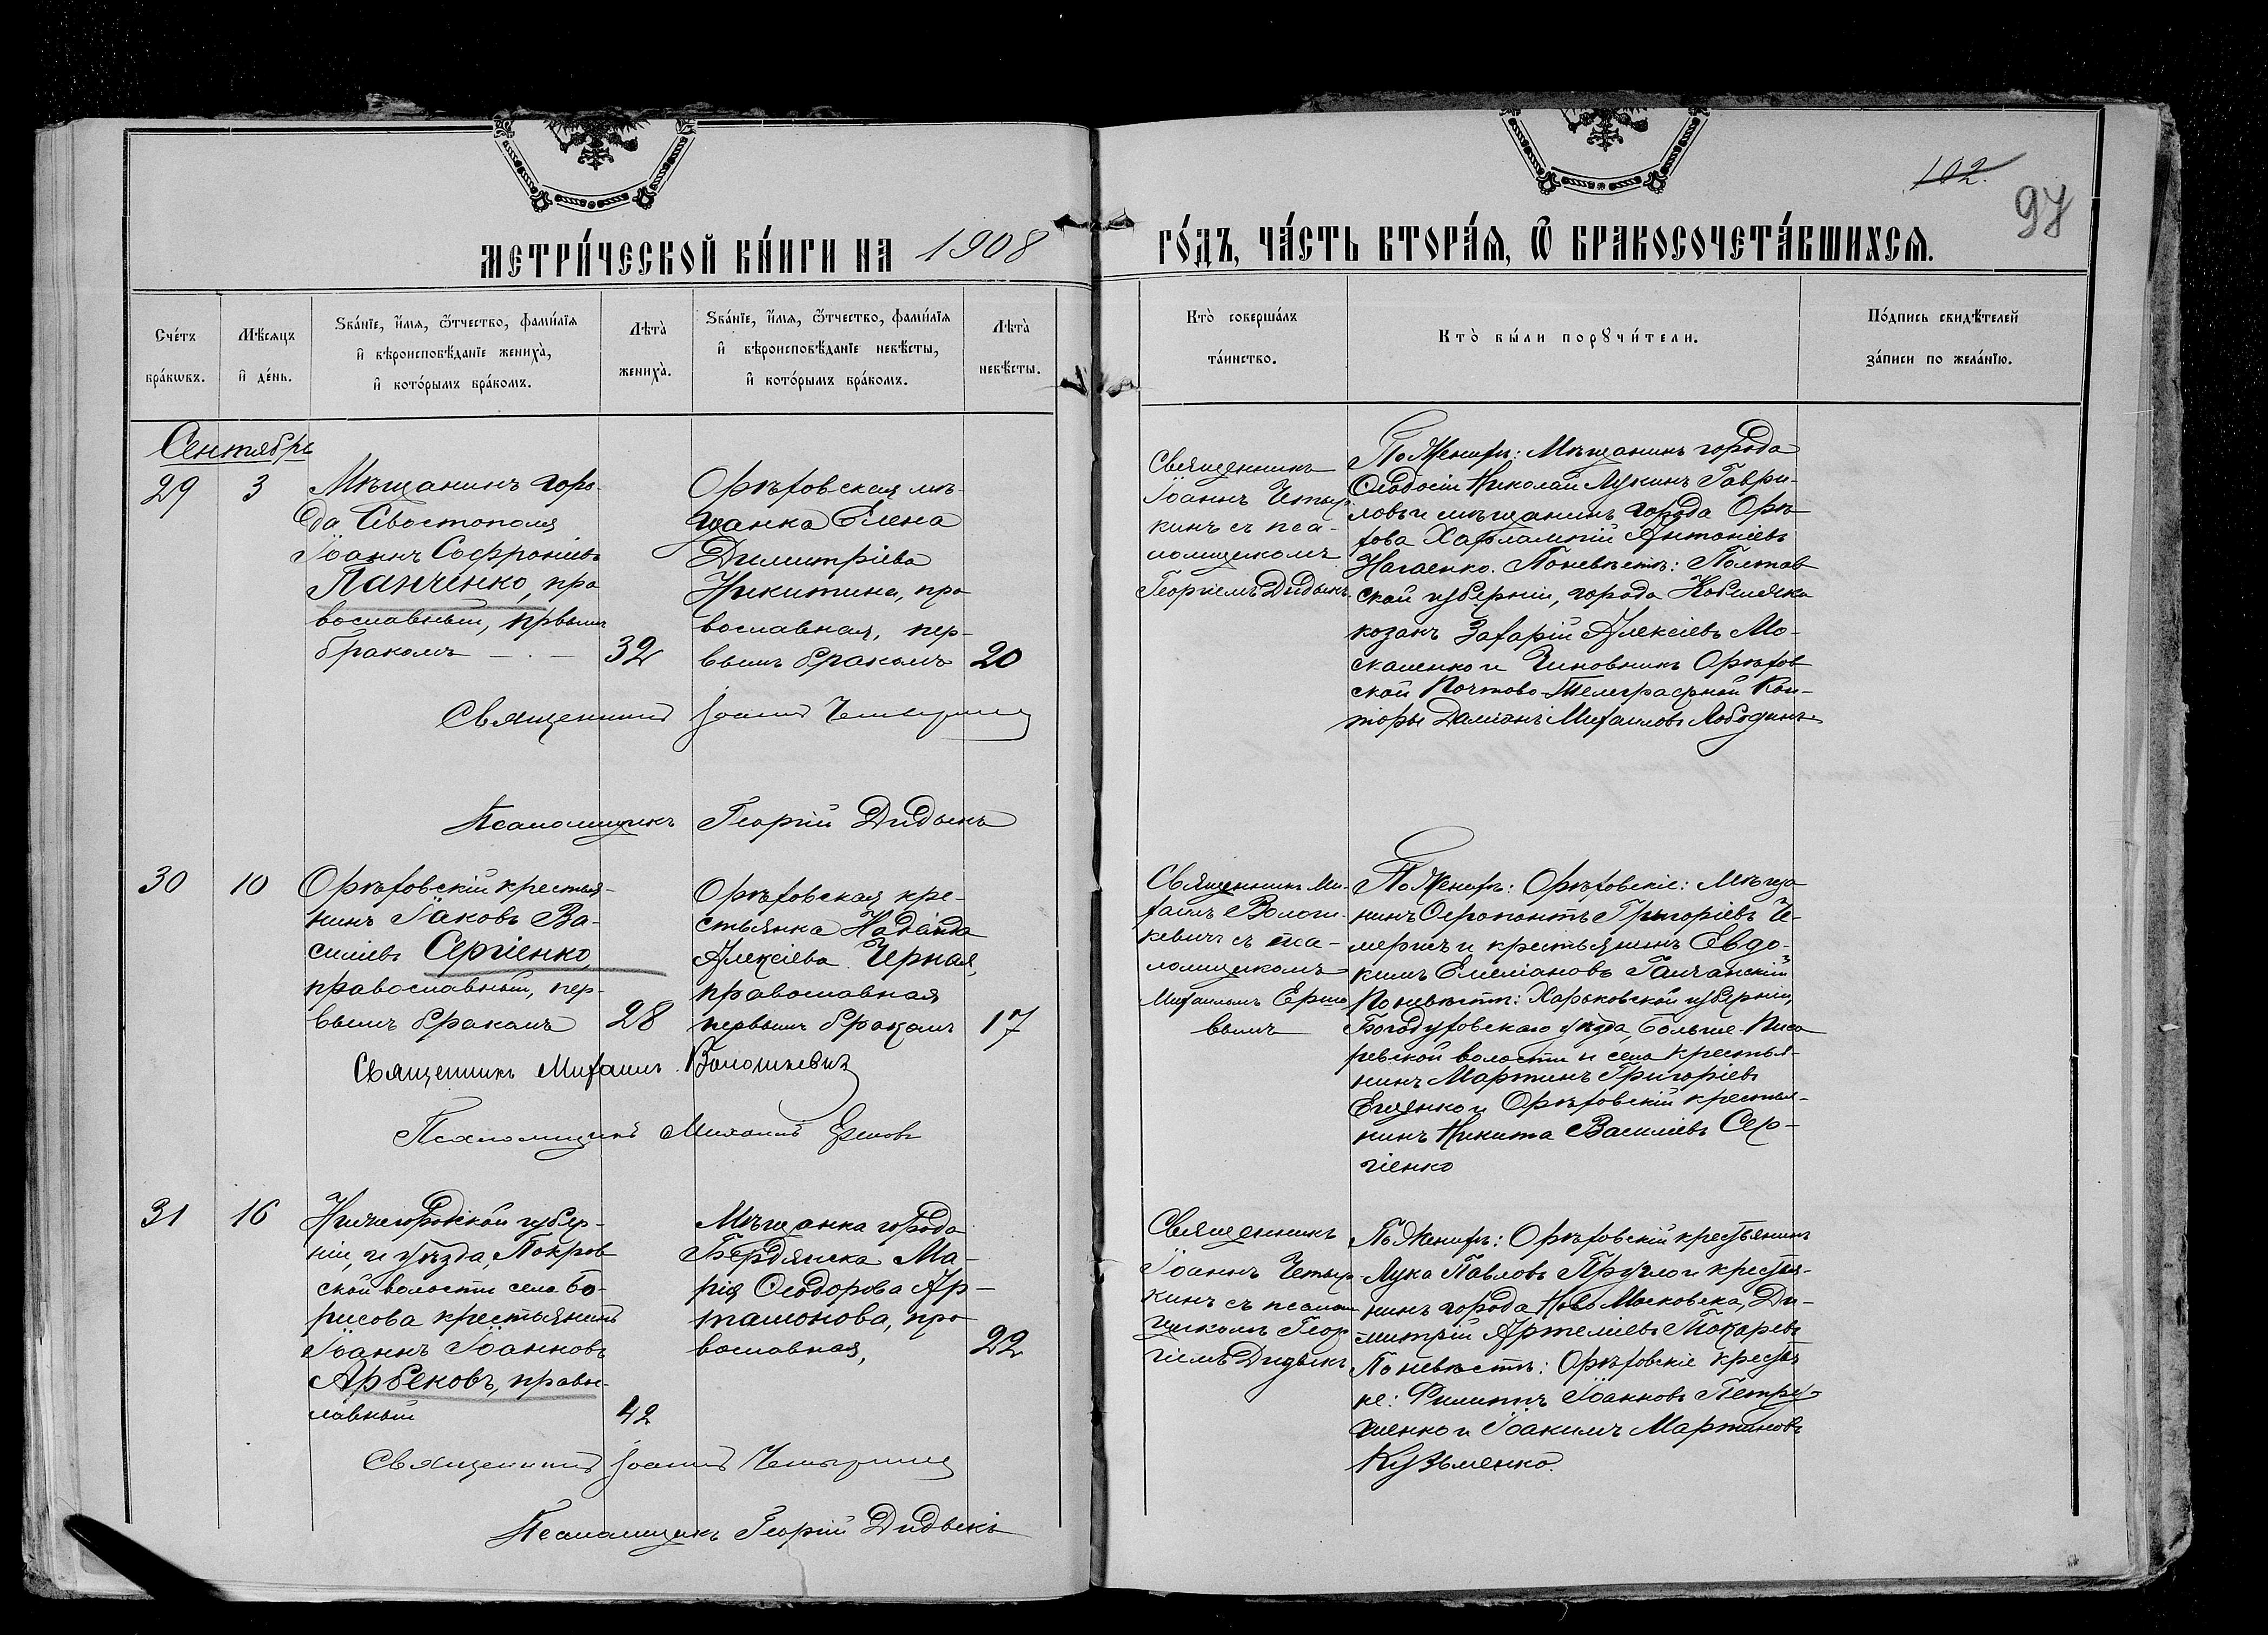 102.
97
МЕТРИ́ЧЕСКОЙ КНИ́ГИ НА 1908 ГО́ДЪ, ЧА́СТЬ ВТОРА́Я, Ѿ БРАКОСОЧЕТА́ВШИХСЯ.
Сче́тъ бра́кѡвъ.
Мѣ́сяцъ и҆ де́нь.
Ѕва́нїе, и҆́мя, ѻ҆́тчество, фами́лїя
и҆ вѣроисповѣ́данїе жениха̀,
и҆ кото́рымъ бра́комъ.
Лѣта̀ жениха̀.
Ѕва́нїе, и҆́мя, ѻ҆́тчество, фами́лїя
и҆ вѣроисповѣ́данїе невѣ́сты,
и҆ кото́рымъ бра́комъ.
Лѣта̀ невѣ́сты.
Кто̀ соверша́лъ
та́инство.
Кто̀ бы́ли порꙋчи́тели.
По́дпись свидѣ́телей
за́писи по жела́нїю.
Сентябрь
29
3
Мѣщанинъ горо-
да Севостополя
Іоаннъ Софроніевъ
Панченко, пра
вославный, првымъ
бракомъ — . —
32
Орѣховская мѣ-
щанка Елена
Димитріева
Никитина, пра
вославная, пер-
вымъ бракомъ
20
Священникъ
Іоаннъ Четыр
кинъ съ пса-
ломщикомъ
Георгіемъ Дидыкъ
По Женихѣ: Мѣщанинъ города
Ѳеодосіи Николай Лукинъ Гаври-
ловъ и мѣщанинъ города Орѣ
хова Харлампій Антоніевъ
Нагаенко. По невѣстѣ: Полтав
ской губерніи, города Кобеляка
козакъ Захарій Алексіевъ Мо-
скаленко и Чиновникъ Орѣхов
ской Почтово-Телеграфной Кон-
торы Даміанъ Михаиловъ Лободинъ
Священникъ Іоаннъ Четыркинъ
Псаломщикъ Георгій Дидыкъ
30
10
Орѣховскій крестья-
нинъ Іаковъ Ва-
силіевъ Сергіенко,
православный, пер-
вымъ бракомъ
28
Орѣховская кре-
стьянка Надежда
Алексіева Черная,
православная
первымъ бракомъ
17
Священникъ Ми-
хаилъ Волош-
кевичъ съ пса-
ломщикомъ
Михаиломъ Ершо
вымъ
По Женихѣ: Орѣховскіе: Мѣща
нинъ Ѳерапонтъ Григоріевъ Че-
мерисъ и крестьянинъ Евдо-
кимъ Емеліановъ Галчанскій
По невѣстѣ: Харьковской губерніи,
Богодуховскаго уѣзда, Больше-Писа
ревской волости и села крестья-
нинъ Мартинъ Григоріевъ
Ещенко и Орѣховскій крестья-
нинъ Никита Василіевъ Сер-
гіенко
Священникъ Михаилъ Волошкевичъ
Псаломщикъ Михаилъ Ершовъ
31
16
Нижегородской губер-
ніи, и уѣзда, Покров
ской волости села Бо-
рисова крестьянинъ
Іоаннъ Іоанновъ
Арбековъ, право-
славный
42
Мѣщанка города
Бердянска Ма-
рія Ѳеодорова Ар-
тамонова, пра
вославная,
22
Священникъ
Іоаннъ Четыр
кинъ съ псалом
щикомъ Геор
гіемъ Дидыкъ
По Женихѣ: Орѣховскій крестьянинъ
Лука Павловъ Пругло и крестья-
нинъ города Ново Московска, Ди-
митрій Артеміевъ Токаревъ
По невѣстѣ: Орѣховскіе крестья
не: Филиппъ Іоанновъ Петру-
шенко и Іоакимъ Мартиновъ
Кузьменко.
Священникъ Іоаннъ Четыркинъ
Псаломщикъ Георгій Дидыкъ